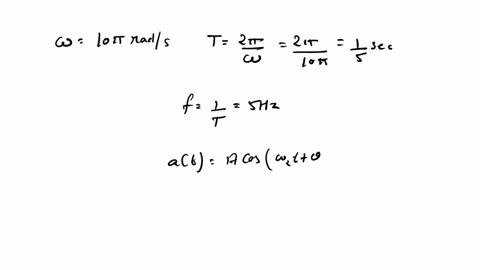 ω = 10π rad/s T = 2π/ω = 2π/10π = 1/5 sec
f = 1/T = 5Hz
a(t) = A cos(ω₁t+θ